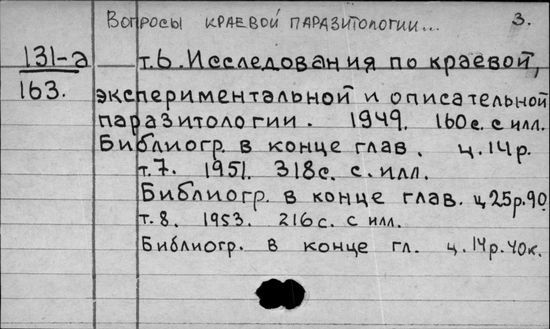 Вопросы краевой паразитологии... 3.
131-а — т.6. Исследования по краевой,
163. экспериментальной и описательной
паразитологии. 1949. 160с. с илл.
Библиогр. в конце глав. ц.14р.
т.7. 1951. 318с. с илл.
Библиогр. в конце глав. ц.25р.90
т.8. 1953. 216с. с илл.
Библиогр. в конце гл. ц.14р.40к.